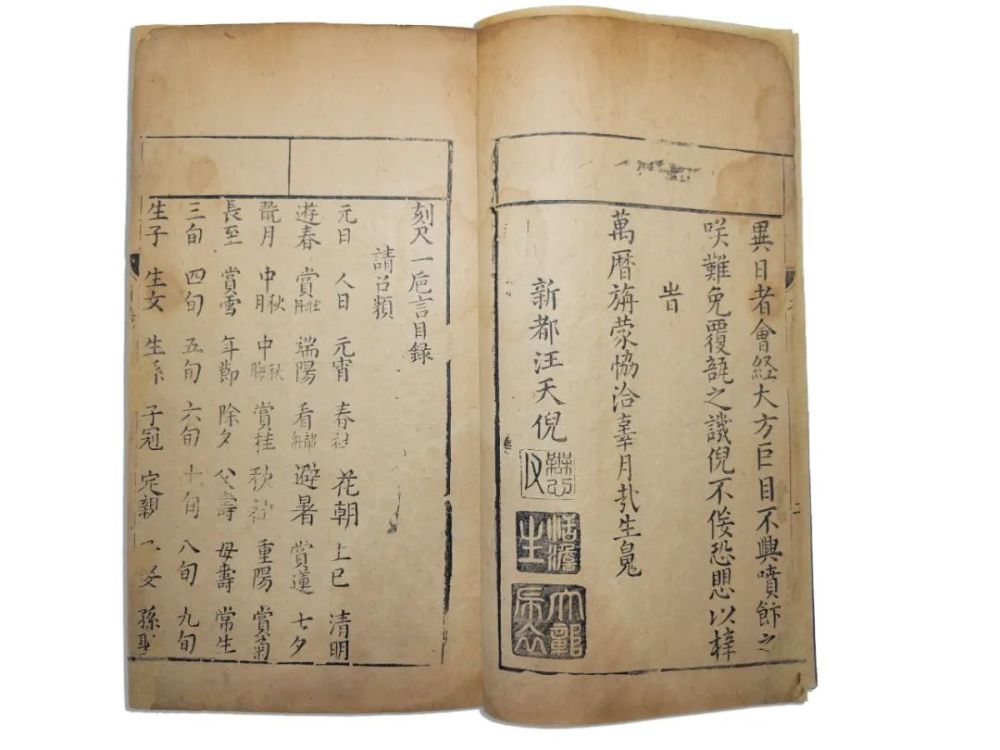 異日者會経大方巨目不興噴飰之
咲難免覆瓿之譏倪不佞恐恧以梓
旹
萬暦旃蒙恊洽辜月㦲生
新都汪天倪
恬澹生
刻尺一巵言目録
請召類
元日 人日 元宵 春社 花朝 上巳 清明
遊春 賞牡丹 端陽 看龍舟 避暑 賞蓮 七夕
翫月 中秋月 中秋 賞桂 秋社 重陽 賞菊
長至 賞雪 年節 除夕 父壽 母壽 常生
三旬 四旬 五旬 六旬 七旬 八旬 九旬
生子 生女 生孫 子冠 定親 孫